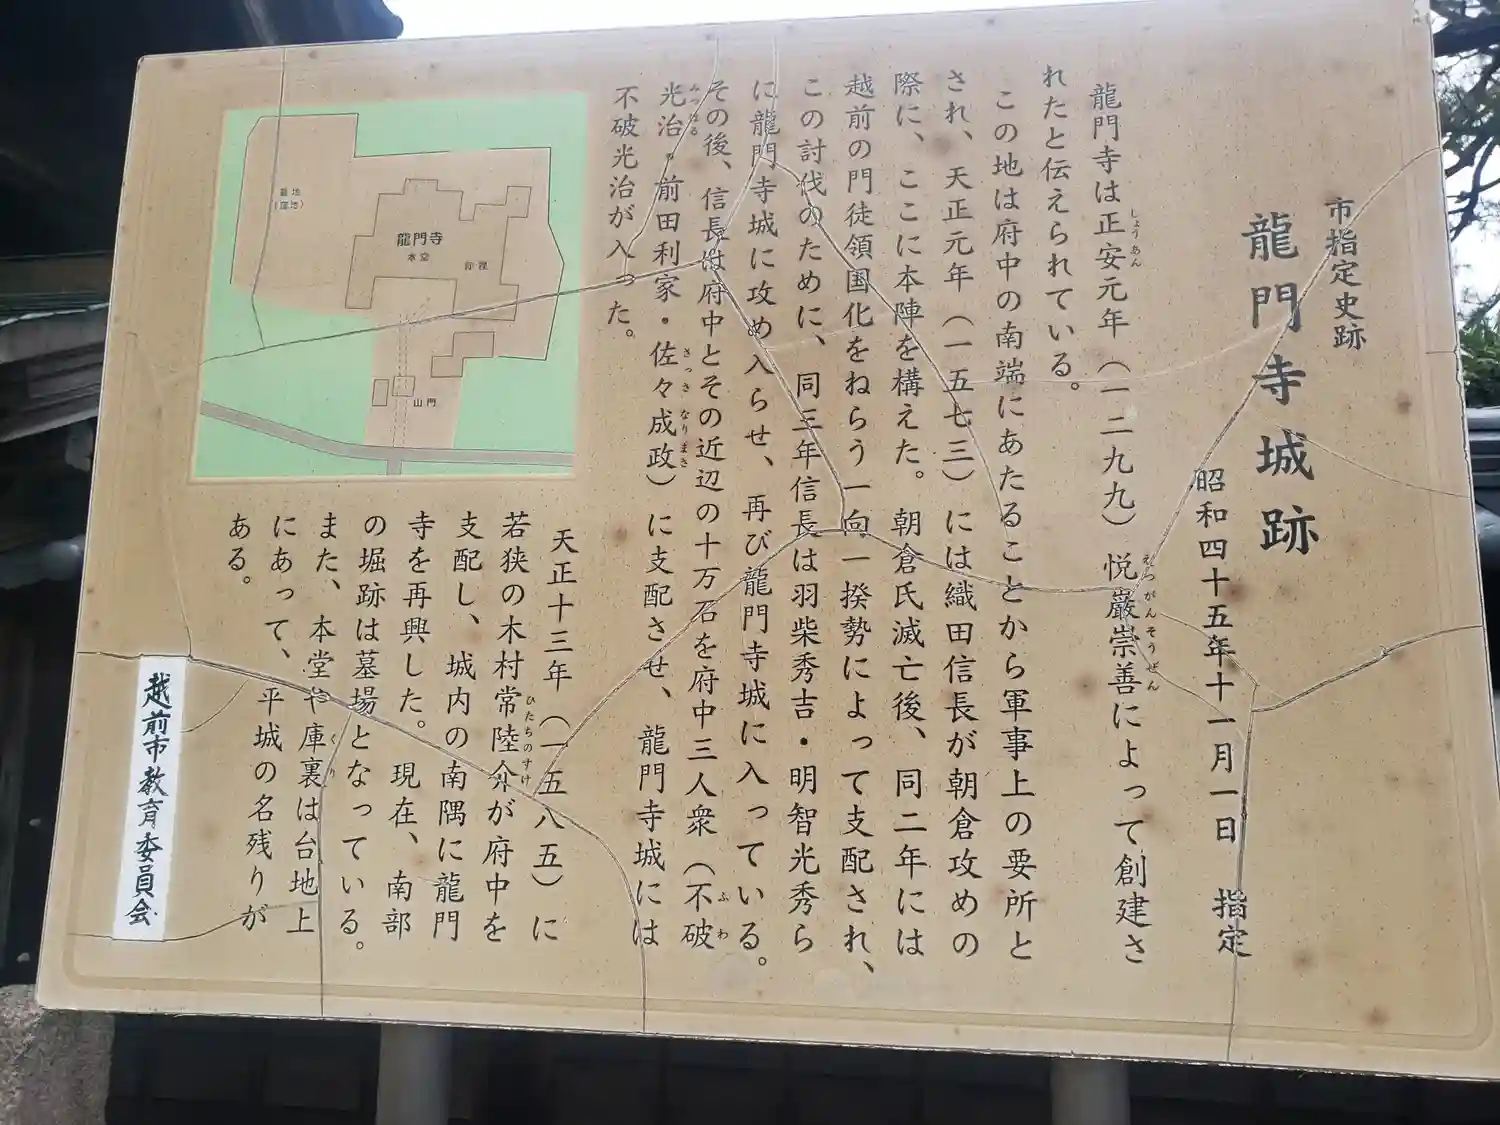 市指定史跡
龍門寺城跡
昭和四十五年十一月一日 指定
龍門寺は正安元年（一二九九）悦巖崇善によって創建さ
しょうあん
えつがんそうぜん
れたと伝えられている。
この地は府中の南端にあたることから軍事上の要所と
され、天正元年（一五七三）には織田信長が朝倉攻めの
際に、ここに本陣を構えた。朝倉氏滅亡後、同二年には
越前の門徒領国化をねらう一向一揆勢によって支配され、
この討伐のために、同三年信長は羽柴秀吉・明智光秀ら
に龍門寺城に攻め入らせ、再び龍門寺城に入っている。
その後、信長は府中とその近辺の十万石を府中三人衆（不破
ふわ
光治・前田利家・佐々成政）に支配させ、龍門寺城には
みつはる
さっさ なりまさ
不破光治が入った。
天正十三年（一五八五）に
若狭の木村常陸介が府中を
ひたちのすけ
支配し、城内の南隅に龍門
寺を再興した。現在、南部
の堀跡は墓場となっている。
また、本堂や庫裏は台地上
くり
にあって、平城の名残りが
ある。
越前市教育委員会
墓地
（窪地）
龍門寺
本堂
庫裡
山門